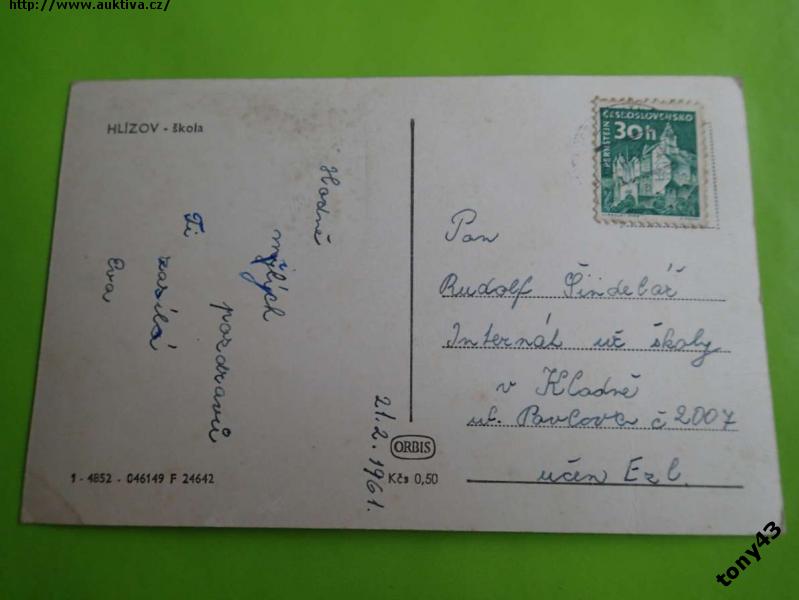 http://www.auktiva.cz/
HLÍZOV - škola
Hodně
milých
pozdravů
Ti zasílá
Eva
21.2.1961.
1 - 4852 - 046149 F 24642
ORBIS
Kčs 0,50
ČESKOSLOVENSKO
PERNŠTEJN
30h
Pan
Rudolf Šindelář
Internát uč školy
v Kladně
ul. Pavlova č 2007
učen Ezl.
tony43